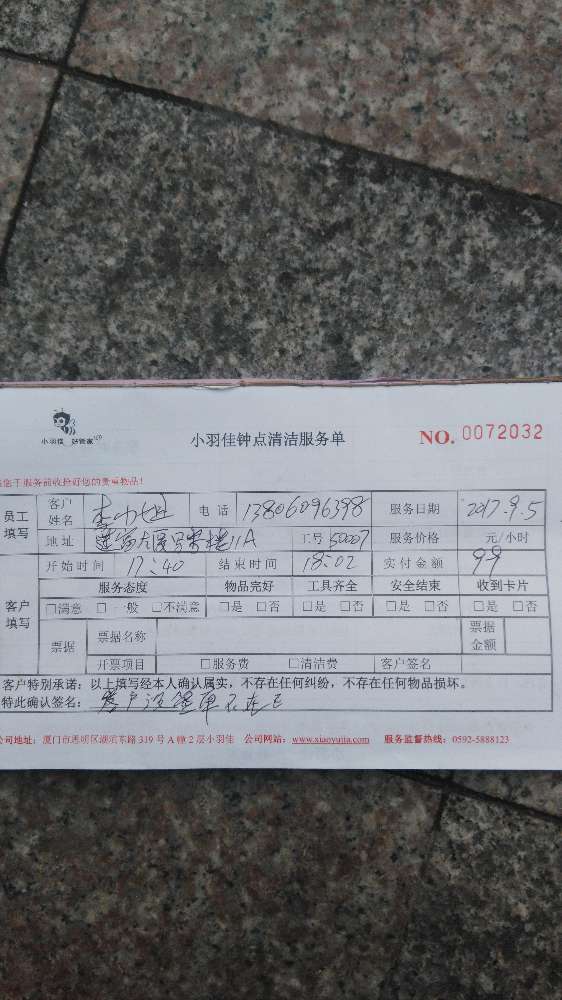 小羽佳 好管家
小羽佳钟点清洁服务单
NO. 0072032
服务前收拾好您的贵重物品!
员工填写 客户姓名 李 电话 13806096398 服务日期 2017.9.5
地址 11A 工号 50007 服务价格 元/小时
开始时间 17:40 结束时间 18:02 实付金额 99
客户填写 服务态度 物品完好 工具齐全 安全结束 收到卡片
□满意 □一般 □不满意 □是 □否 □是 □否 □是 □否 □是 □否
票据 票据名称 票据金额
开票项目 □服务费 □清洁费 客户签名
客户特别承诺:以上填写经本人确认属实,不存在任何纠纷,不存在任何物品损坏。
特此确认签名: 客户
公司地址:厦门市思明区湖滨东路 319 号 A 幢 2 层小羽佳 公司网站:www.xiaoyujia.com 服务监督热线:0592-5888123